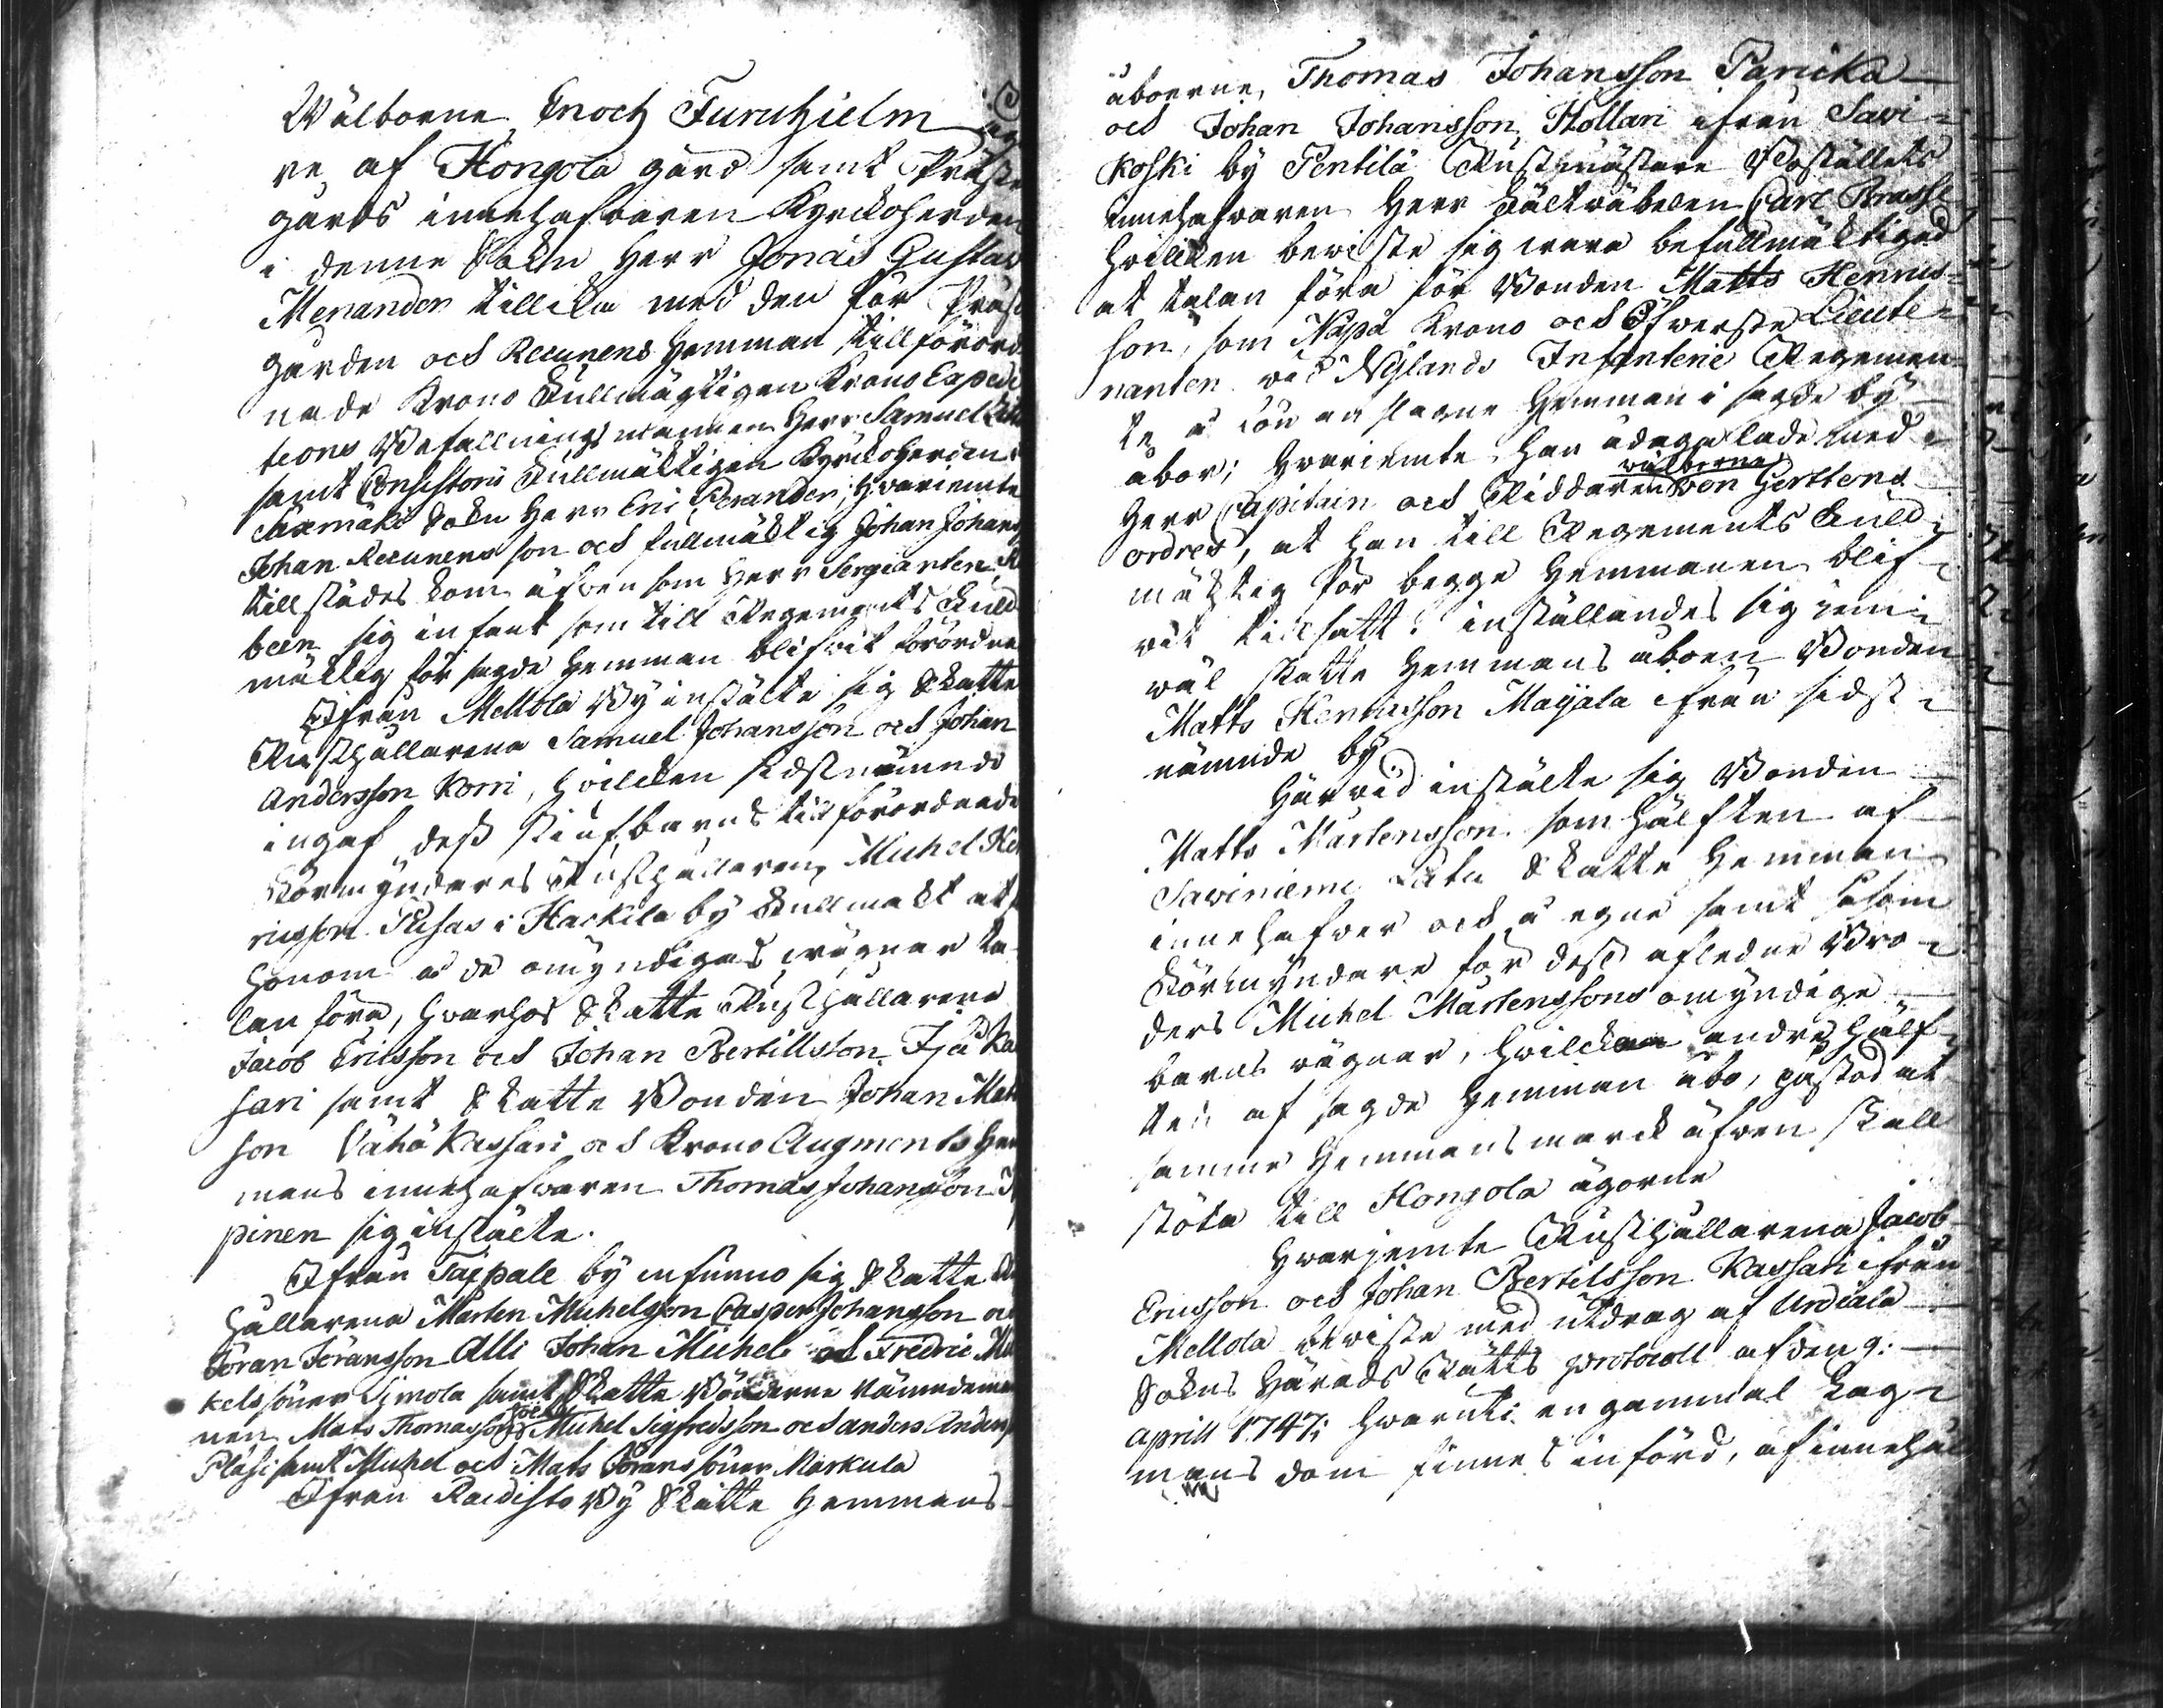 Wälborne Enoch Furuhielm äga
re af Hongola gård samt Präste
gårds innehafvaren Kyrckoherden
i denne Sokn Herr Jonas Gustav
Menander tillika med den för Präst
gården och Recunens Hemman tillförord
nade Krono Fullmägtigen Krono Expedi
tions Befallningsmannen Herr Samuel
samt Consistorii Fullmäktigen Kyrckoherden i
Sokn Herr Eric Perander; hvariemte
Johan Recunens son och fullmäktig Johan Johans
tillstädes kom äfven som Herr Sergeanten
been sig infant som till Regements Fuld
mäktig för sagde Hemman blifvit förordna
Ifrån Mellola By instälte sig Skatte
Rusthållarena Samuel Johansson och Johan
Andersson Korri, hvilcken sidstnämnde
ingaf dess stiufbarns tillförordnade
Förmyndares Rusthållaren Michel
ricsson Pusas i Hackila by Fullmakt at
honom å de omyndigas wägnar ta
lan föra, hvarhos Skatte Rusthållarena
Jacob Ericsson och Johan Bertillsson Ka
sari samt Skatte Bonden Johan Mat
son Vähä Kassari och Krono Augments Hem
mans innehafvaren Thomas Johansson
pinen sig instälte.
Ifrån Taipale by infunno sig Skatte
hållarena Mårten Michelsson Casper Johansson oc
Göran Göransson Alli Johan Michel och Fredric Mi
kels söner Simola samt Skatte Bönderne Nämndeman
nen Mats Thomasson Michel Sigfredsson och Anders Anders
samt Michel och Mats Görans söner Markula
Ifrån Raedisto By Skatte Hemmans
åboerne, Thomas Johansson Paricka
och Johan Johansson Hollari ifrån Savi-
koski by Pentilä Rustmästare Boställets
innehafvaren Herr Fältwäbelen Carl
hvilcken beviste sig wara befullmäktigad
at talan föra för Bonden Matts Henrics-
son, som Näpä Krono och Öfwerste Lieute-
nanten wid Nylands Infanterie Regemen-
te å lön anslagne Hemman i sagde by
åbor; hvariemte han ådagalade med
wälborne
Herr Capitain och Riddaren von Gerttens
ordres, at han till Regements Fuld-
mäktig för begge Hemmanen blif-
vit tillsatt: inställandes sig jem-
wäl Skatte Hemmans åboen Bonden
Matts Henricsson Mayala ifrån sidst-
nämnde by
Härwid instälte sig Bonden
Matts Mårtensson som hälften af
Saviniemi Skatte Hemman
innehafver och å egne samt såsom
Förmyndare för dess afledne Bro-
ders Michel Mårtenssons omyndige
barns wägnar, hvilcka andra hälf-
ten af sagde Hemman åbo, påstod at
samme Hemmansmarck äfven skall
stöta till Hongola ägorne
Hvarjemte Rusthållarena Jacob
Ericsson och Johan Bertilsson Kassari ifrån
Mellola bewiste med utdrag af Urdiala
Sokns Härads Rätts protocoll af den 9:
april 1747: hwaruti en gammal Lag-
mans dom finnes införd, af innehål